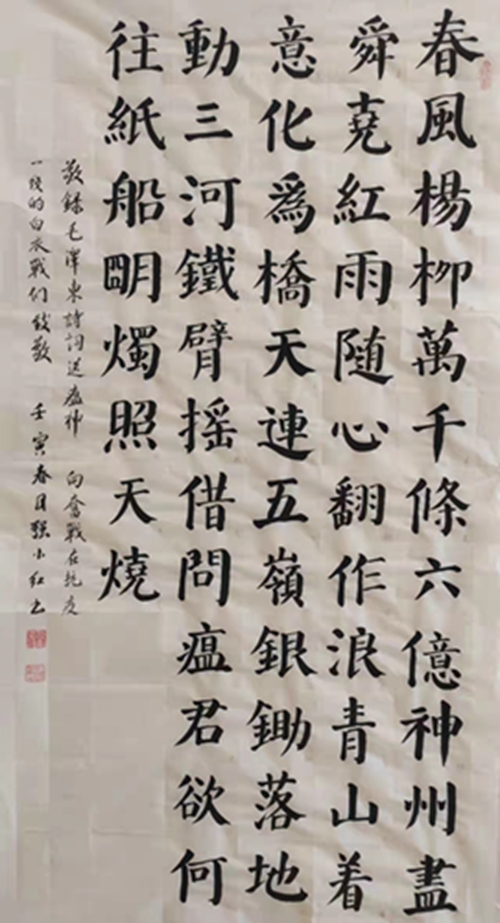 春風楊柳萬千條六億神州盡
舜堯紅雨随心翻作浪青山着
意化爲橋天連五嶺銀鋤落地
動三河鐵臂摇借問瘟君欲何
往紙船眀燭照天燒
敬錄毛澤東詩詞送瘟神 向奮戰在抗疫
一线的白衣戰们致敬 壬寅春月强小红书